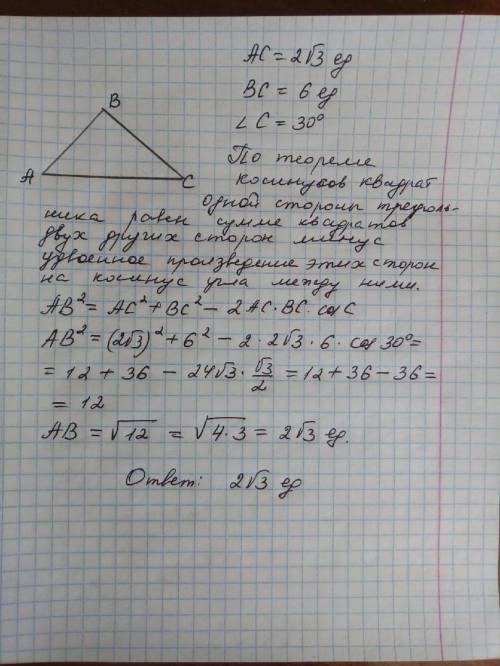 AC = 2√3 ед
BC = 6 ед
∠C = 30°
B
A
C
По теореме
косинусов квадрат
одной стороны треуголь-
ника равен сумме квадратов
двух других сторон минус
удвоенное произведение этих сторон
на косинус угла между ними.
AB² = AC² + BC² - 2AC·BC·cosC
AB² = (2√3)² + 6² - 2·2√3·6·cos 30° =
= 12 + 36 - 24√3·√3/2 = 12 + 36 - 36 =
= 12
AB = √12 = √4·3 = 2√3 ед.
Ответ: 2√3 ед